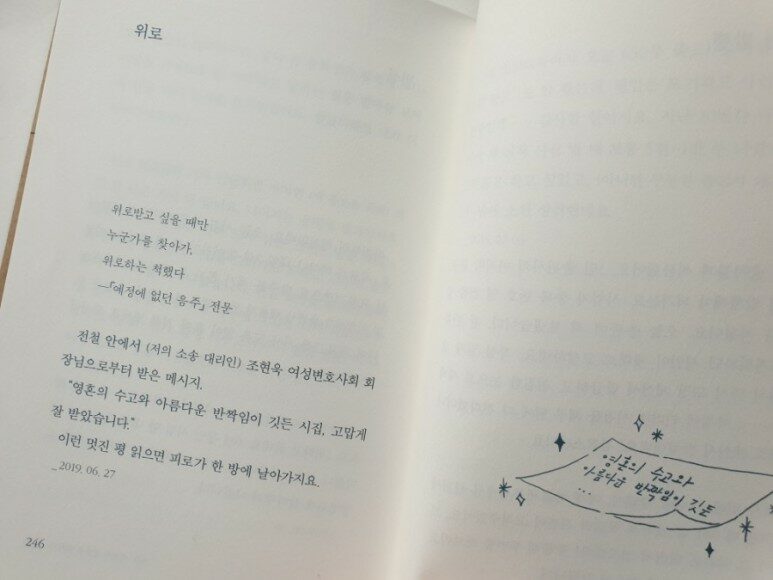 위로
위로받고 싶을 때만
누군가를 찾아가,
위로하는 척했다
—「예정에 없던 음주」 전문
전철 안에서 (저의 소송 대리인) 조현욱 여성변호사회 회
장님으로부터 받은 메시지.
"영혼의 수고와 아름다운 반짝임이 깃든 시집, 고맙게
잘 받았습니다."
이런 멋진 평 읽으면 피로가 한 방에 날아가지요.
_2019. 06. 27
246
영혼의 수고와
아름다운 반짝임이 깃든
...